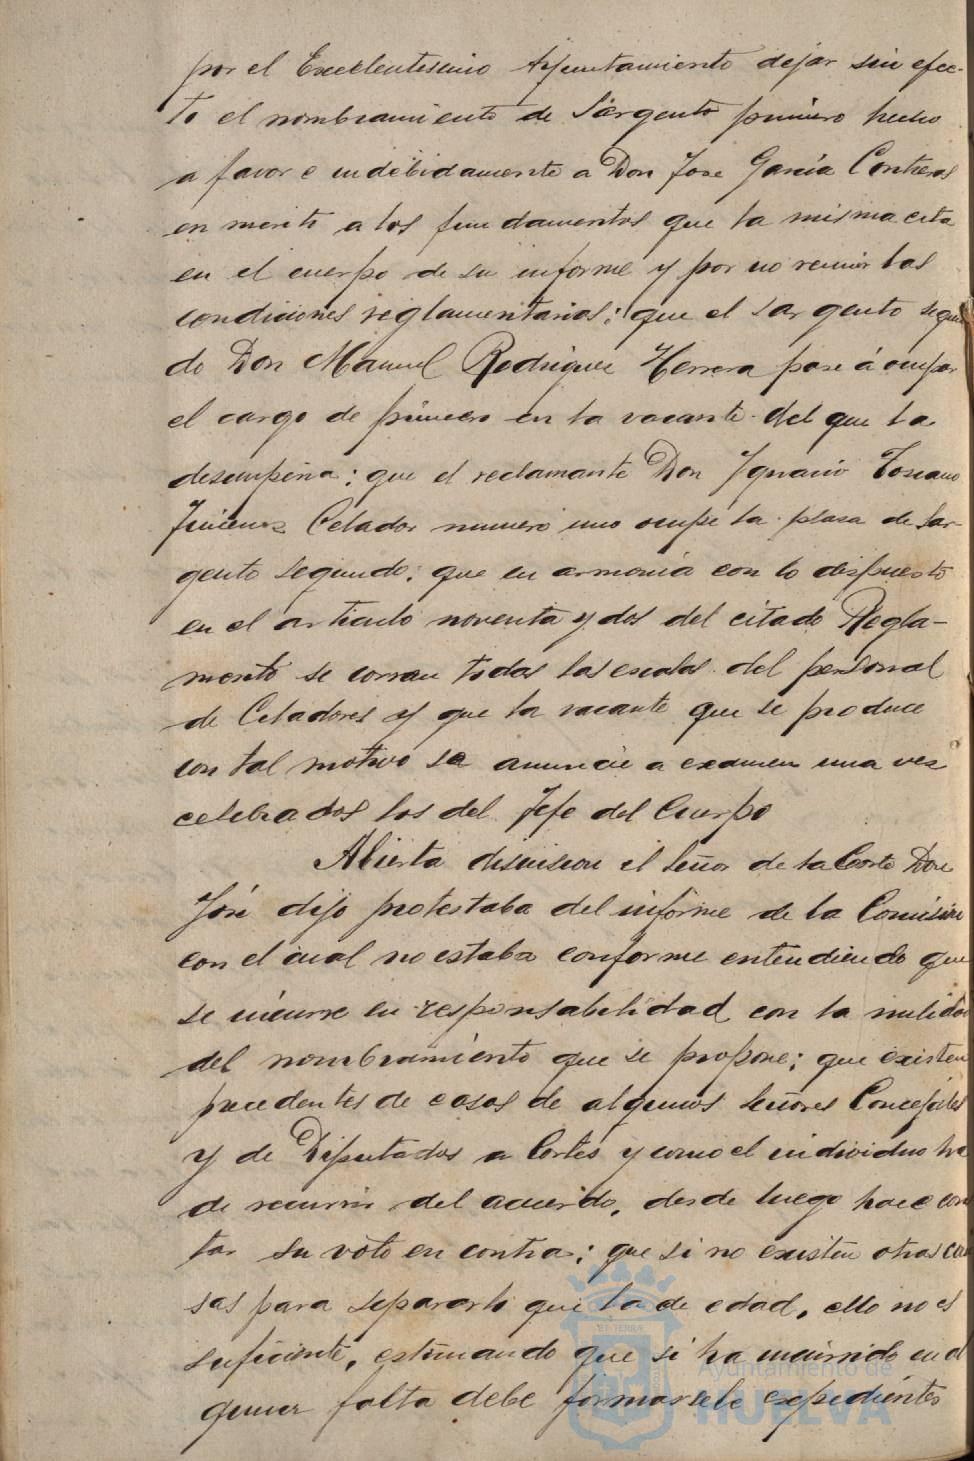 por el Excelentisimo Ayuntamiento dejar sin efec-
to el nombramiento de Sargento primero hecho
a favor e indebidamente a Don Jose Garcia Contreras
en merito a los fundamentos que la misma cita
en el cuerpo de su informe y por no reunir las
condiciones reglamentarias; que el Sargento segun
do Don Manuel Rodriguez Herrera pase á ocupar
el cargo de primero en la vacante del que la
desempeña; que el reclamante Don Ignacio Toscano
Jimenez Celador numero uno ocupe la plasa de Sar-
gento segundo; que en armonia con lo dispuesto
en el articulo noventa y dos del citado Regla-
mento se corran todas las escalas del personal
de Celadores y que la vacante que se produce
con tal motivo se anuncie a examen una vez
celebrados los del Jefe del Cuerpo
Abierta discusion el Señor de la Corte Don
José dijo protestaba del informe de la Comision
con el cual no estaba conforme entendiendo que
se incurre en responsabilidad con la nulidad
del nombramiento que se propone; que existen
precedentes de casos de algunos Señores Concejales
y de Diputados a Cortes y como el individuo ha
de recurrir del acuerdo, desde luego hace cons
tar su voto en contra; que si no existen otras cau
sas para separarlo que la de edad, ello no es
suficiente, estimando que si ha incurrido en al
guna falta debe formarsele expedientes
ET TERRÆ
Ayuntamiento de
HUELVA